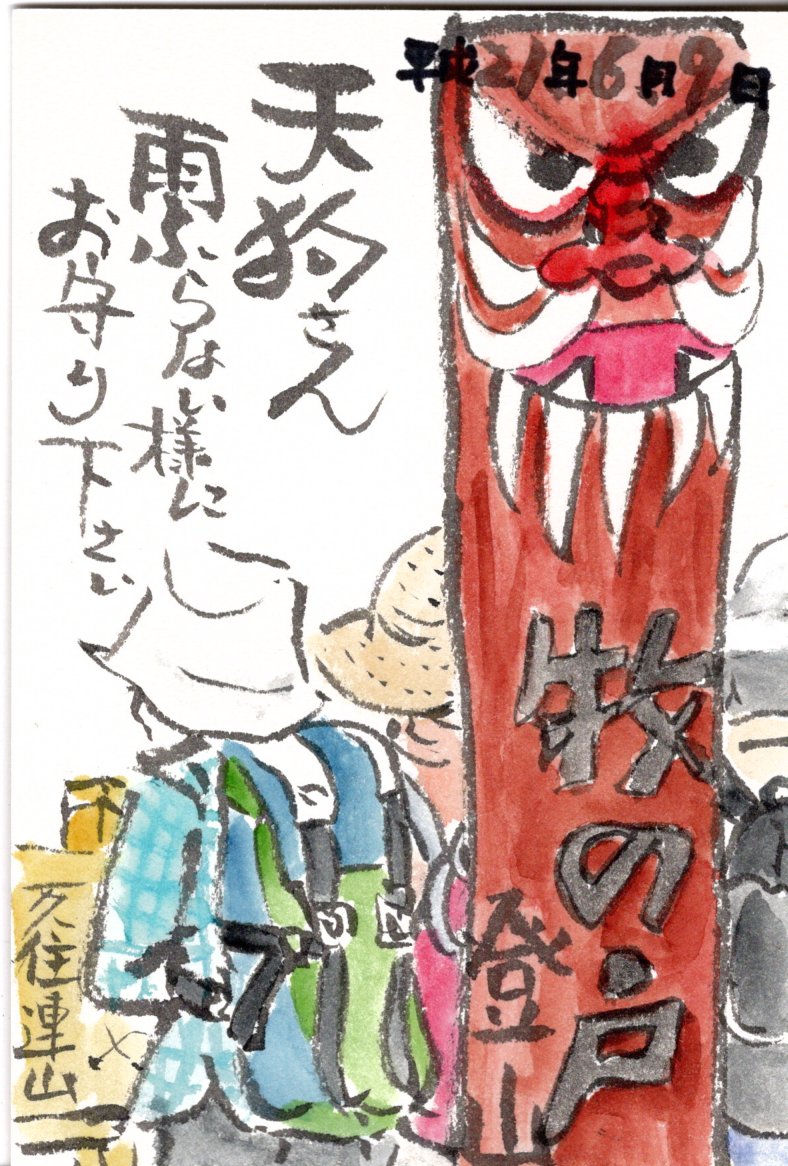 平成21年6月9日
天狗さん
雨ふらない様に
お守り下さい
牧の戸
登山
久住連山